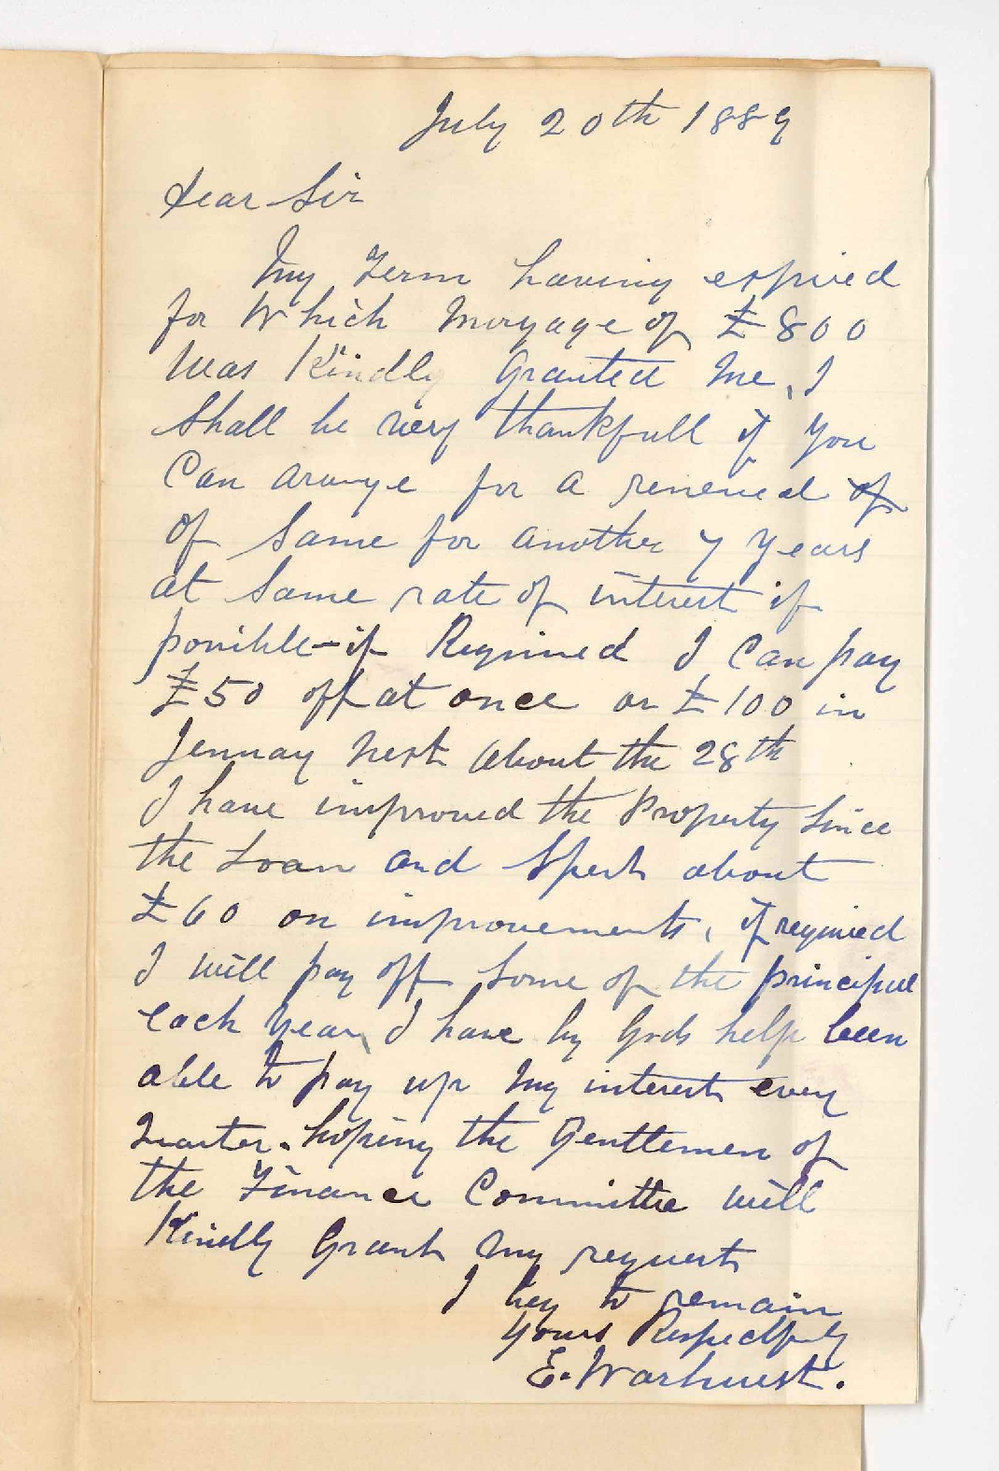 July 20th 1889
Dear Sir
My Term having expired
for Which Morgage of £800
Was Kindly Granted Me, I
Shall be very thankfull if You
Can arange for a renewal of
of Same for another 7 Years
at Same rate of interest if
possible - if Required I Can pay
£50 off at once or £100 in
Jenuay next about the 28th
I have improved the Property Since
the Loan and Spent about
£60 on improvements, if required
I will pay off Some of the principal
each year, I have by Gods help been
able to pay up My interest every
Quarter. hoping the Gentlemen of
the Finance Committee will
Kindly Grant My request
I beg to remain
Yours Respectfuly
E. Warhurst.